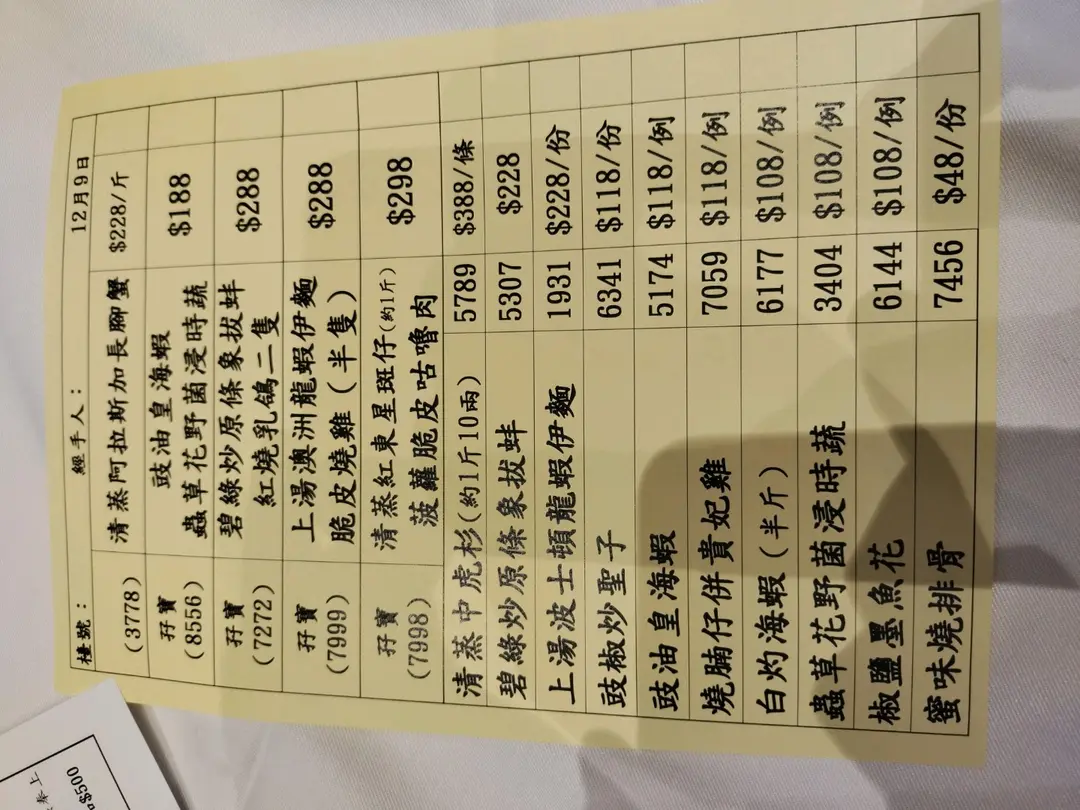 檯號： 經手人： 12月9日
(3778) 清蒸阿拉斯加長腳蟹 $228/斤
孖寶 豉油皇海蝦 $188
(8556) 蟲草花野菌浸時蔬
孖寶 碧綠炒原條象拔蚌 $288
(7272) 紅燒乳鴿二隻
孖寶 上湯澳洲龍蝦伊麵 $288
(7999) 脆皮燒雞（半隻）
孖寶 清蒸紅東星斑仔(約1斤) $298
(7998) 菠蘿脆皮咕嚕肉
清蒸中虎杉(約1斤10兩) 5789 $388/條
碧綠炒原條象拔蚌 5307 $228
上湯波士頓龍蝦伊麵 1931 $228/份
豉椒炒聖子 6341 $118/份
豉油皇海蝦 5174 $118/例
燒腩仔併貴妃雞 7059 $118/例
白灼海蝦（半斤） 6177 $108/例
蟲草花野菌浸時蔬 3404 $108/例
椒鹽墨魚花 6144 $108/例
蜜味燒排骨 7456 $48/份
奉上
$500